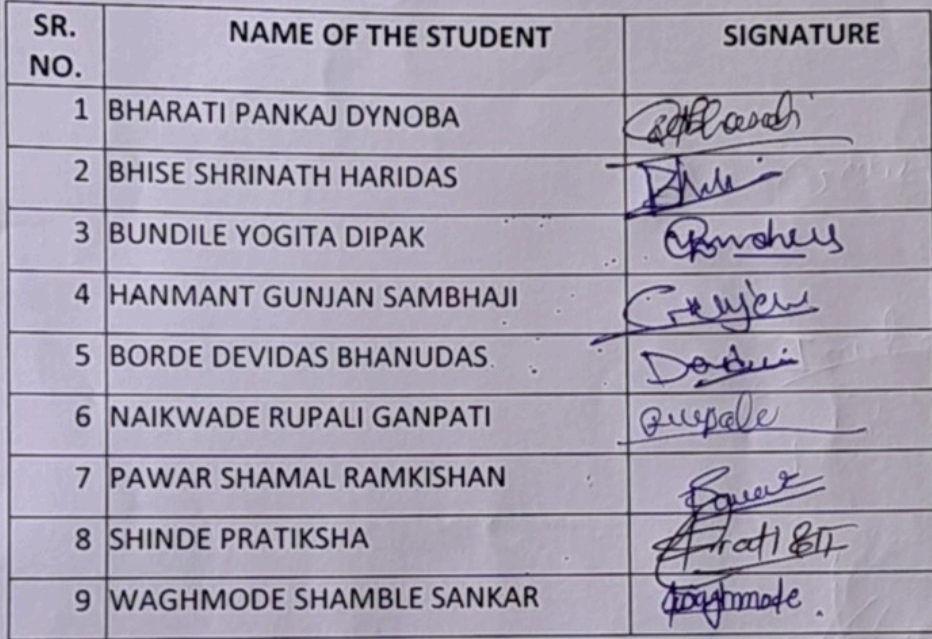 SR. NO. NAME OF THE STUDENT SIGNATURE
1 BHARATI PANKAJ DYNOBA
2 BHISE SHRINATH HARIDAS
3 BUNDILE YOGITA DIPAK
4 HANMANT GUNJAN SAMBHAJI Gunjan
5 BORDE DEVIDAS BHANUDAS
6 NAIKWADE RUPALI GANPATI Rupale
7 PAWAR SHAMAL RAMKISHAN
8 SHINDE PRATIKSHA
9 WAGHMODE SHAMBLE SANKAR Waghmode